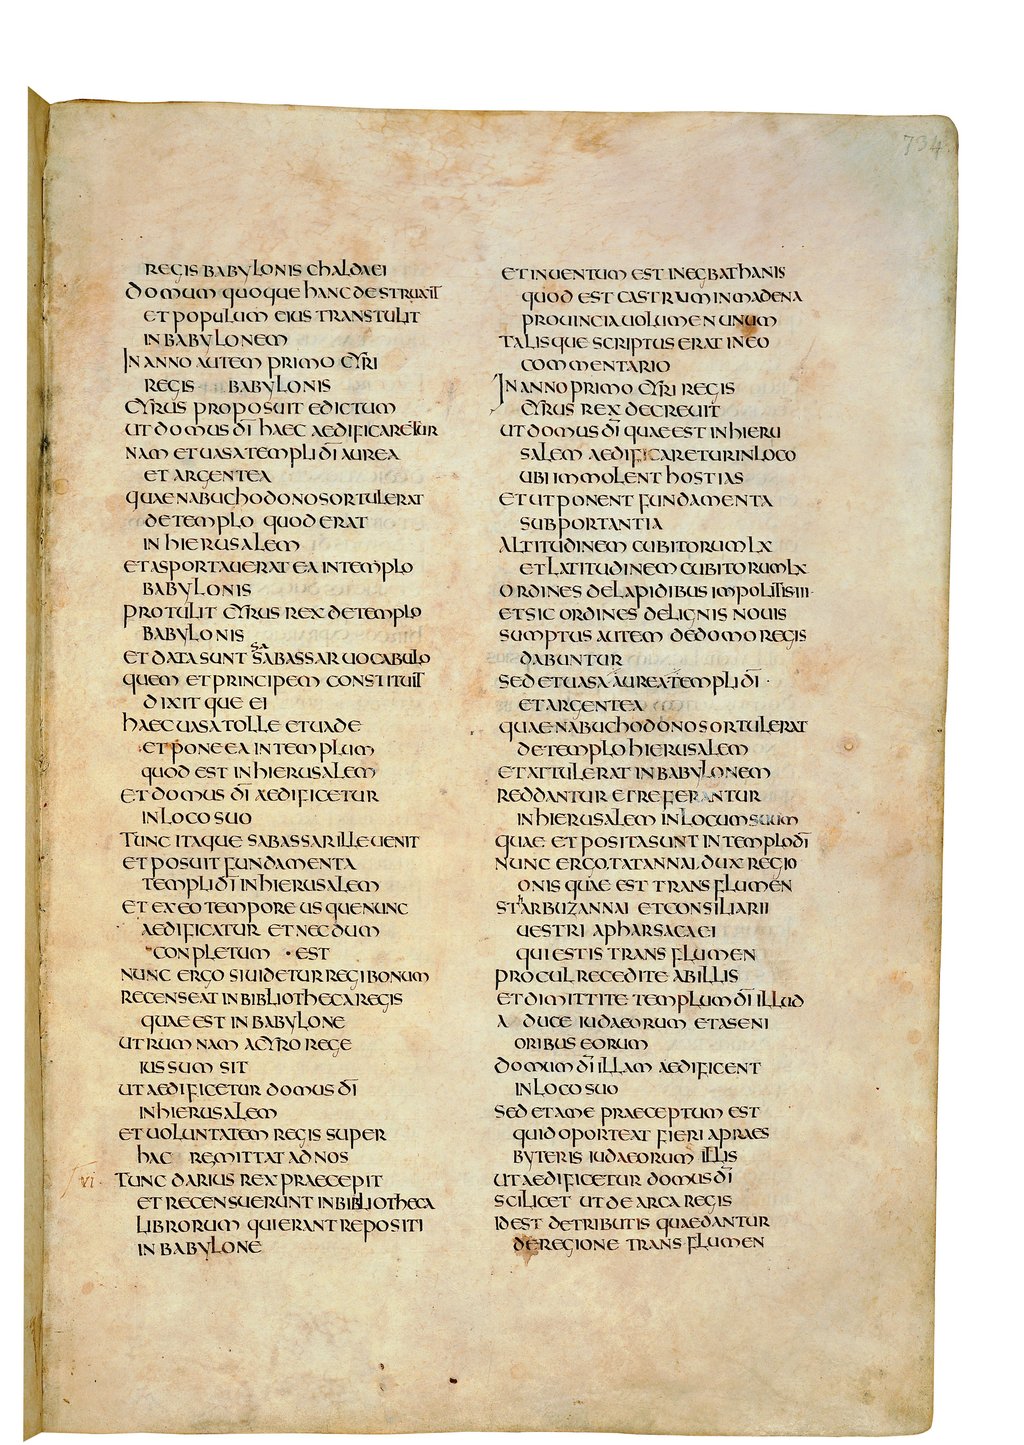 734
REGIS BABYLONIS CHALDAEI
DOMUM QUOQUE HANC DESTRUXIT
ET POPULUM EIUS TRANSTULIT
IN BABYLONEM
IN ANNO AUTEM PRIMO CYRI
REGIS BABYLONIS
CYRUS PROPOSUIT EDICTUM
UT DOMUS DĪ HAEC AEDIFICARETUR
NAM ET UASA TEMPLI DĪ AUREA
ET ARGENTEA
QUAE NABUCHODONOSOR TULERAT
DE TEMPLO QUOD ERAT
IN HIERUSALEM
ET ASPORTAUERAT EA IN TEMPLO
BABYLONIS
PROTULIT CYRUS REX DE TEMPLO
BABYLONIS
SA
ET DATA SUNT SABASSAR UOCABULO
QUEM ET PRINCIPEM CONSTITUIT
DIXITQUE EI
HAEC UASA TOLLE ET UADE
ET PONE EA IN TEMPLUM
QUOD EST IN HIERUSALEM
ET DOMUS DĪ AEDIFICETUR
IN LOCO SUO
TUNC ITAQUE SABASSAR ILLE UENIT
ET POSUIT FUNDAMENTA
TEMPLI DĪ IN HIERUSALEM
ET EX EO TEMPORE USQUE NUNC
AEDIFICATUR ET NECDUM
CONPLETUM · EST
NUNC ERGO SI UIDETUR REGI BONUM
RECENSEAT IN BIBLIOTHECA REGIS
QUAE EST IN BABYLONE
UTRUMNAM A CYRO REGE
IUSSUM SIT
UT AEDIFICETUR DOMUS DĪ
IN HIERUSALEM
ET UOLUNTATEM REGIS SUPER
HAC REMITTAT AD NOS
VI · TUNC DARIUS REX PRAECEPIT
ET RECENSUERUNT IN BIBLIOTHECA
LIBRORUM QUI ERANT REPOSITI
IN BABYLONE
ET INUENTUM EST IN ECBATHANIS
QUOD EST CASTRUM IN MADENA
PROUINCIA UOLUMEN UNUM
TALISQUE SCRIPTUS ERAT IN EO
COMMENTARIO
IN ANNO PRIMO CYRI REGIS
CYRUS REX DECREUIT
UT DOMUS DĪ QUAE EST IN HIERU
SALEM AEDIFICARETUR IN LOCO
UBI IMMOLENT HOSTIAS
ET UT PONENT FUNDAMENTA
SUBPORTANTIA
ALTITUDINEM CUBITORUM LX
ET LATITUDINEM CUBITORUM LX
ORDINES DE LAPIDIBUS IMPOLITIS III ·
ET SIC ORDINES DE LIGNIS NOUIS
SUMPTUS AUTEM DE DOMO REGIS
DABUNTUR
SED ET UASA AUREA TEMPLI DĪ ·
ET ARGENTEA
QUAE NABUCHODONOSOR TULERAT
DE TEMPLO HIERUSALEM
ET ATTULERAT IN BABYLONEM
REDDANTUR ET REFERANTUR
IN HIERUSALEM IN LOCUM SUUM
QUAE ET POSITA SUNT IN TEMPLO DĪ
NUNC ERGO TATANNAI DUX REGIO
ONIS QUAE EST TRANS FLUMEN
STARBUZANNAI ET CONSILIARII
UESTRI APHARSACAEI
QUI ESTIS TRANS FLUMEN
PROCUL RECEDITE AB ILLIS
ET DIMITTITE TEMPLUM DĪ ILLUD
A DUCE IUDAEORUM ET A SENI
ORIBUS EORUM
DOMUM DĪ ILLAM AEDIFICENT
IN LOCO SUO
SED ET A ME PRAECEPTUM EST
QUID OPORTEAT FIERI A PRAES
BYTERIS IUDAEORUM ILLIS
UT AEDIFICETUR DOMUS DĪ
SCILICET UT DE ARCA REGIS
ID EST DE TRIBUTIS QUAE DANTUR
DE REGIONE TRANS FLUMEN